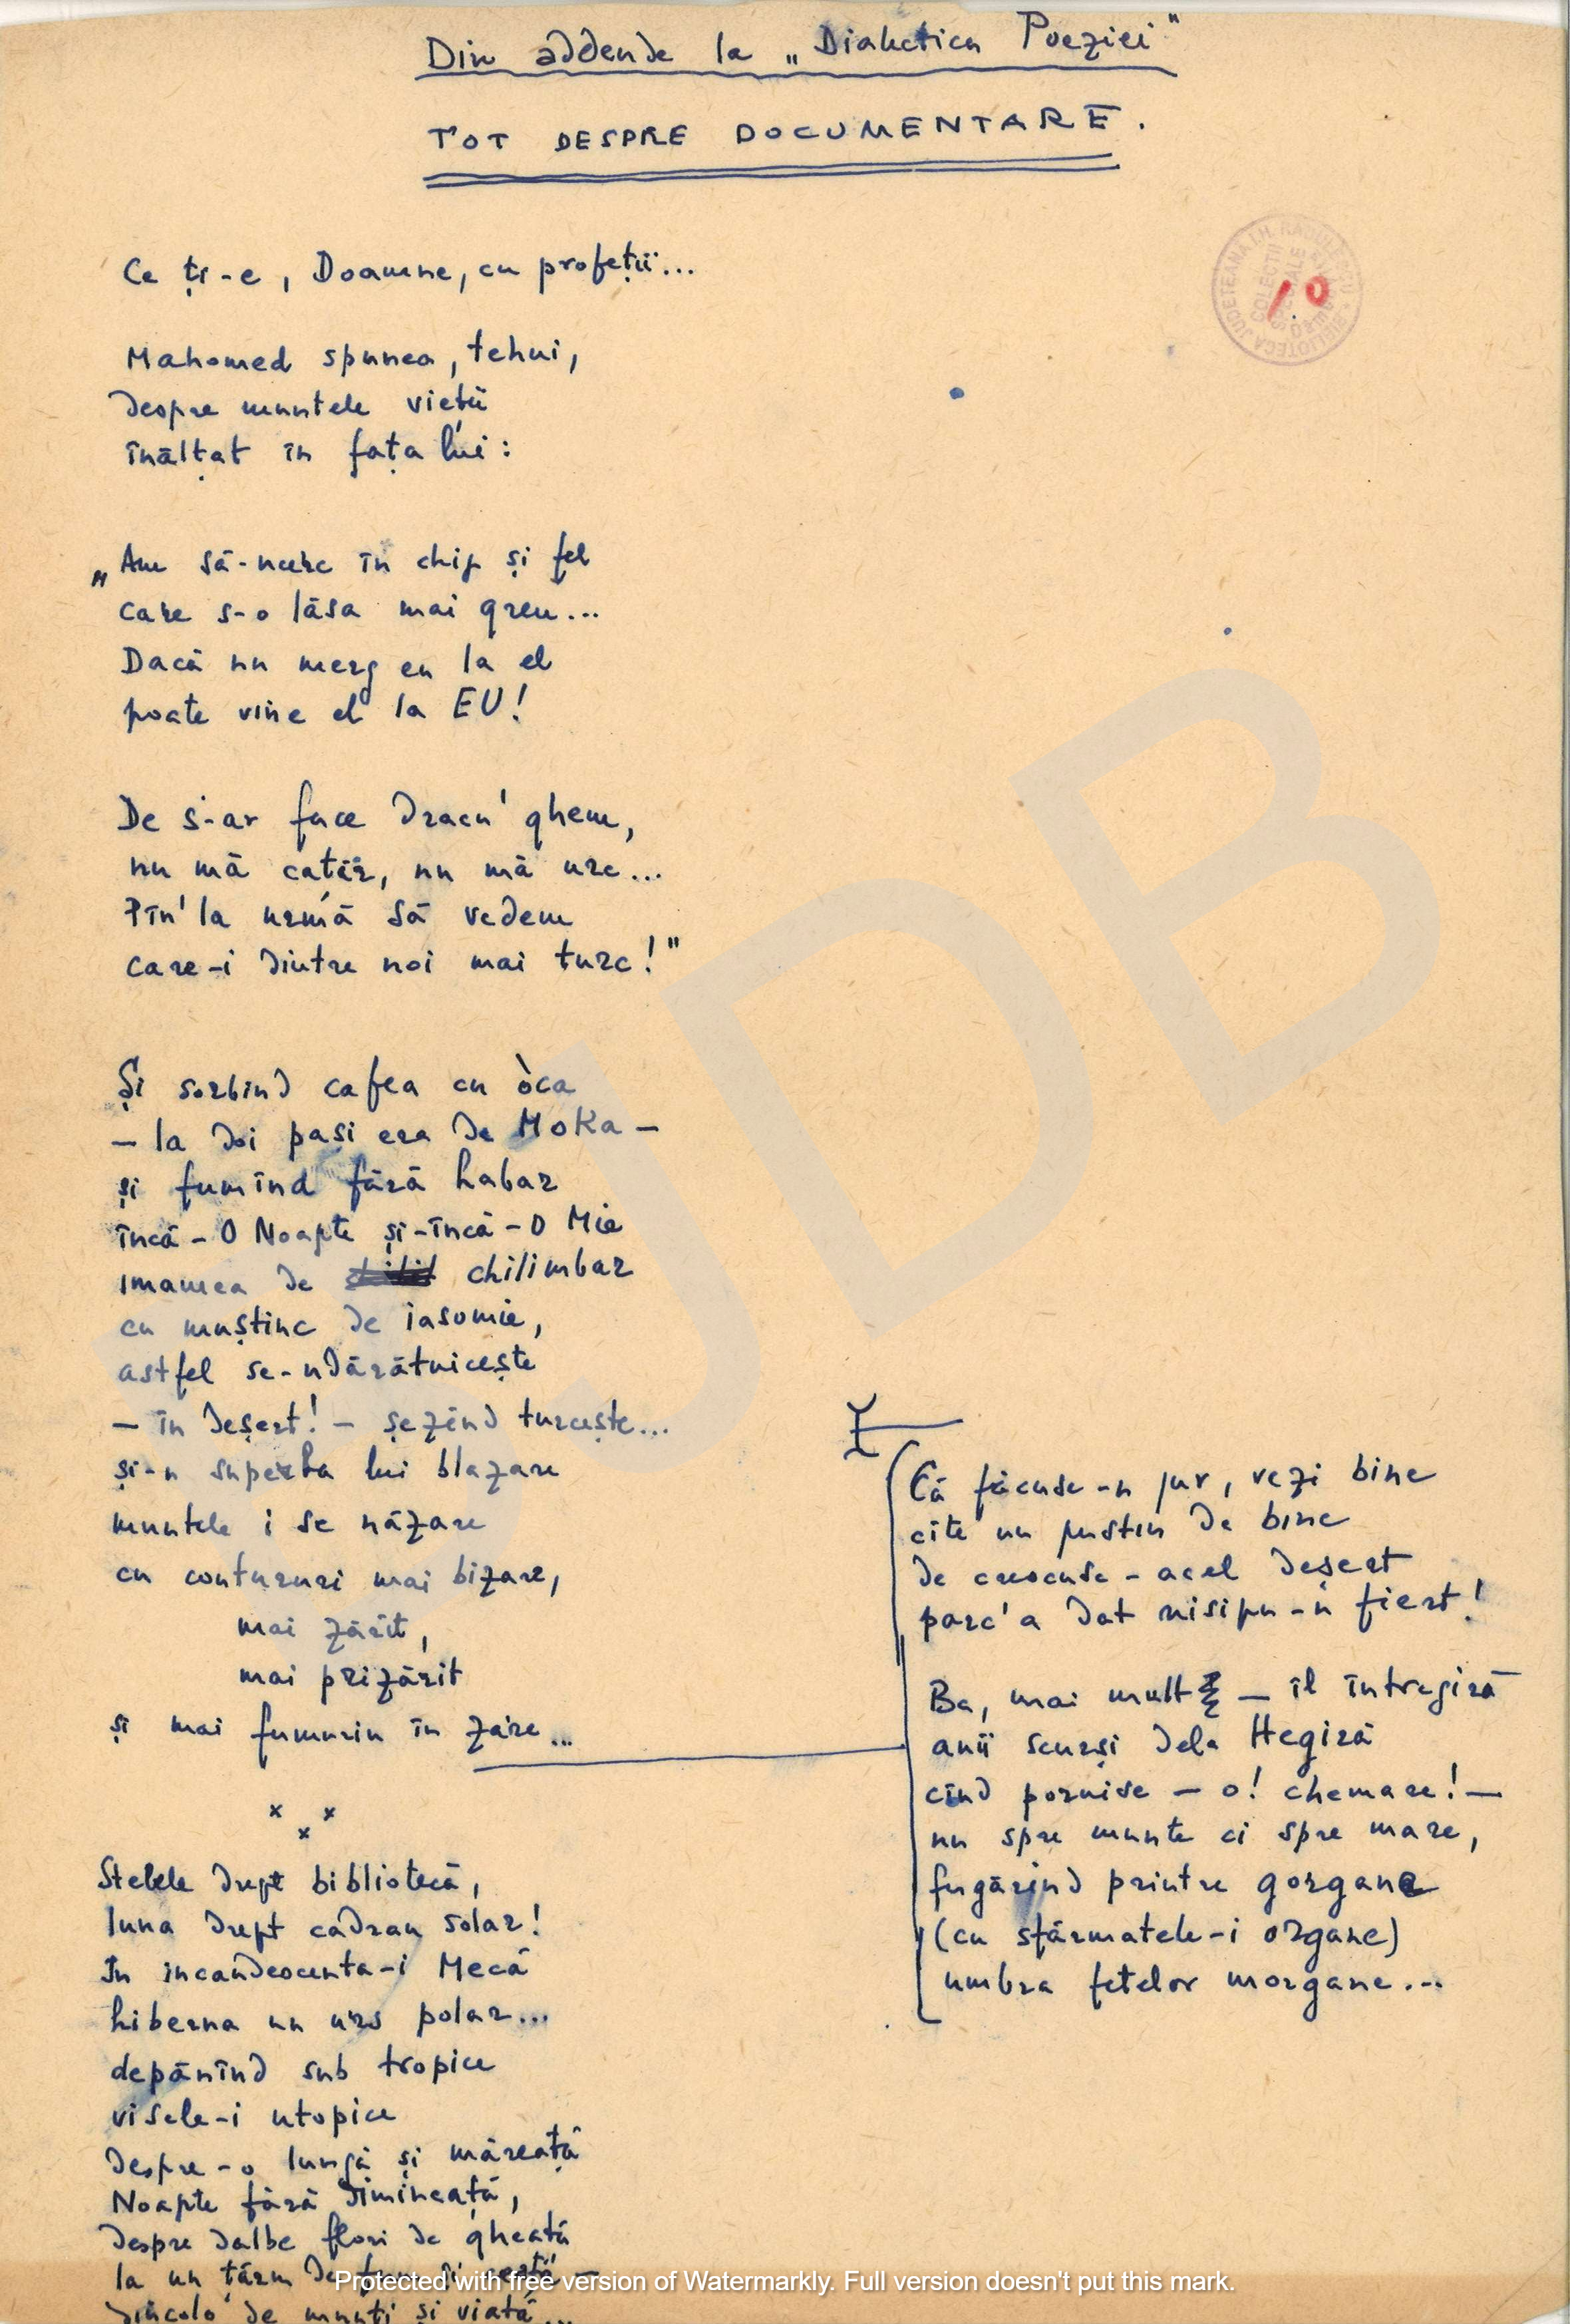 Din addende la „Dialectica Poeziei"
TOT DESPRE DOCUMENTARE.
10
Ce ți-e, Doamne, cu profeții...
Mahomed spunea, tehui,
despre muntele vieții
înălțat în fața lui:
„Am să-ncerc în chip și fel
care s-o lăsa mai greu...
Dacă nu merg eu la el
poate vine el la EU!
De s-ar face dracu' ghem,
nu mă catăr, nu mă urc...
Pîn'la urmă să vedem
care-i dintre noi mai turc!"
Și sorbind cafea cu òca
– la doi pași era de Moka –
și fumînd fără habar
încă-O Noapte și-încă-O Mie
imamea de chilimbar
cu muștiuc de iasomie,
astfel se-ndărătnicește
– în deșert! – șezînd turcește...
și-n superba lui blazare
muntele i se năzare
cu contururi mai bizare,
mai zărit,
mai prizărit
și mai fumuriu în zare...
Că făcuse-n jur, vezi bine
cîte un pustiu de bine
de crescuse-acel deșert
parc'a dat nisipu-n fiert!
Ba, mai mult – îl întregiră
anii scurși dela Hegiră
cînd pornise – o! chemare! –
nu spre munte ci spre mare,
fugărind printre gorgane
(cu sfărmatele-i organe)
umbra fetelor morgane...
x x
x
Stelele drept bibliotecă,
luna drept cadran solar!
În incandescenta-i Mecă
hiberna un urs polar...
depănînd sub tropice
visele-i utopice
despre-o lungă și măreață
Noapte fără dimineață,
despre dalbe flori de gheață
la un țărm de
dincolo de munți și viață...
Protected with free version of Watermarkly. Full version doesn't put this mark.
JDB